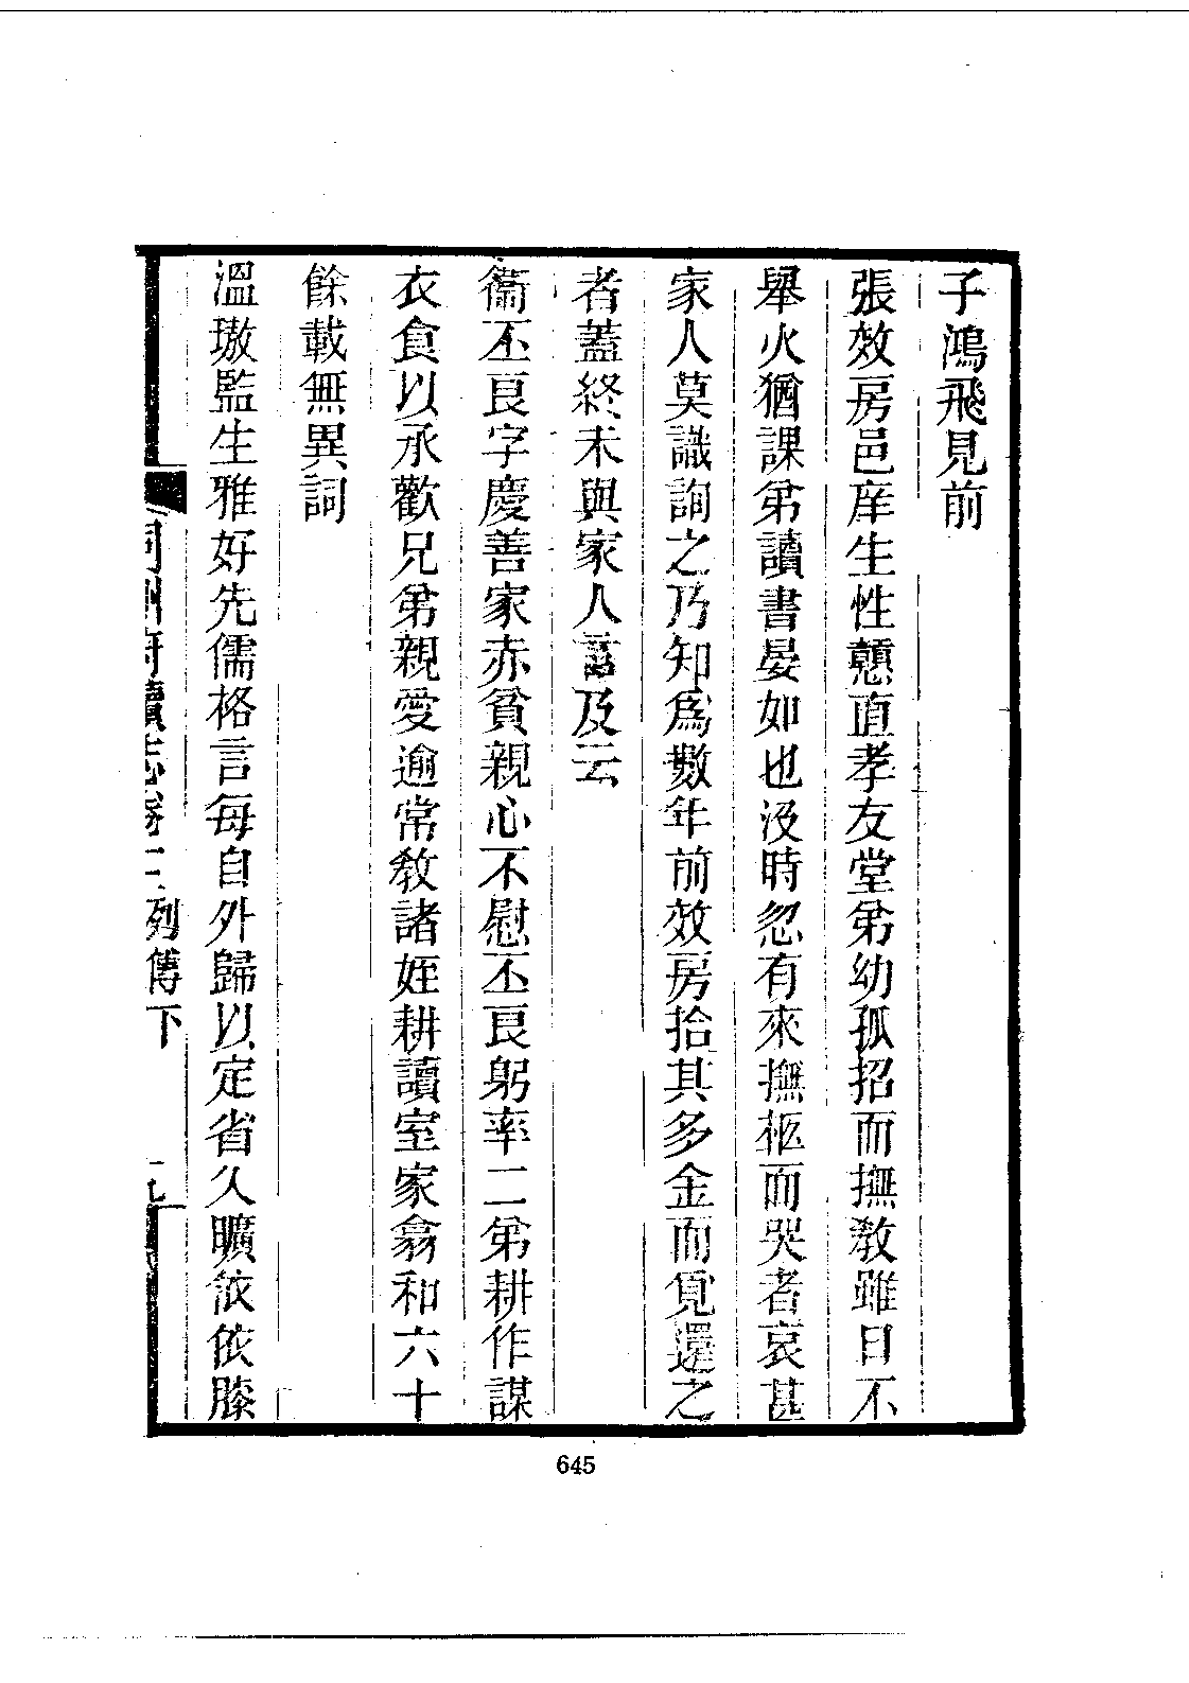 子鴻飛見前
張效房邑庠生性戇直孝友堂弟幼孤招而撫教雖日不
舉火猶課弟讀書晏如也沒時忽有來撫柩而哭者哀甚
家人莫識詢之乃知爲數年前效房拾其多金而覓還之
者蓋終未與家人言及云
衞丕艮字慶善家赤貧親心不慰丕艮躬率二弟耕作謀
衣食以承歡兄弟親愛逾常教諸姪耕讀室家翕和六十
餘載無異詞
溫璈監生雅好先儒格言每自外歸以定省久曠依依膝
同州府續志卷十二列傳下
645